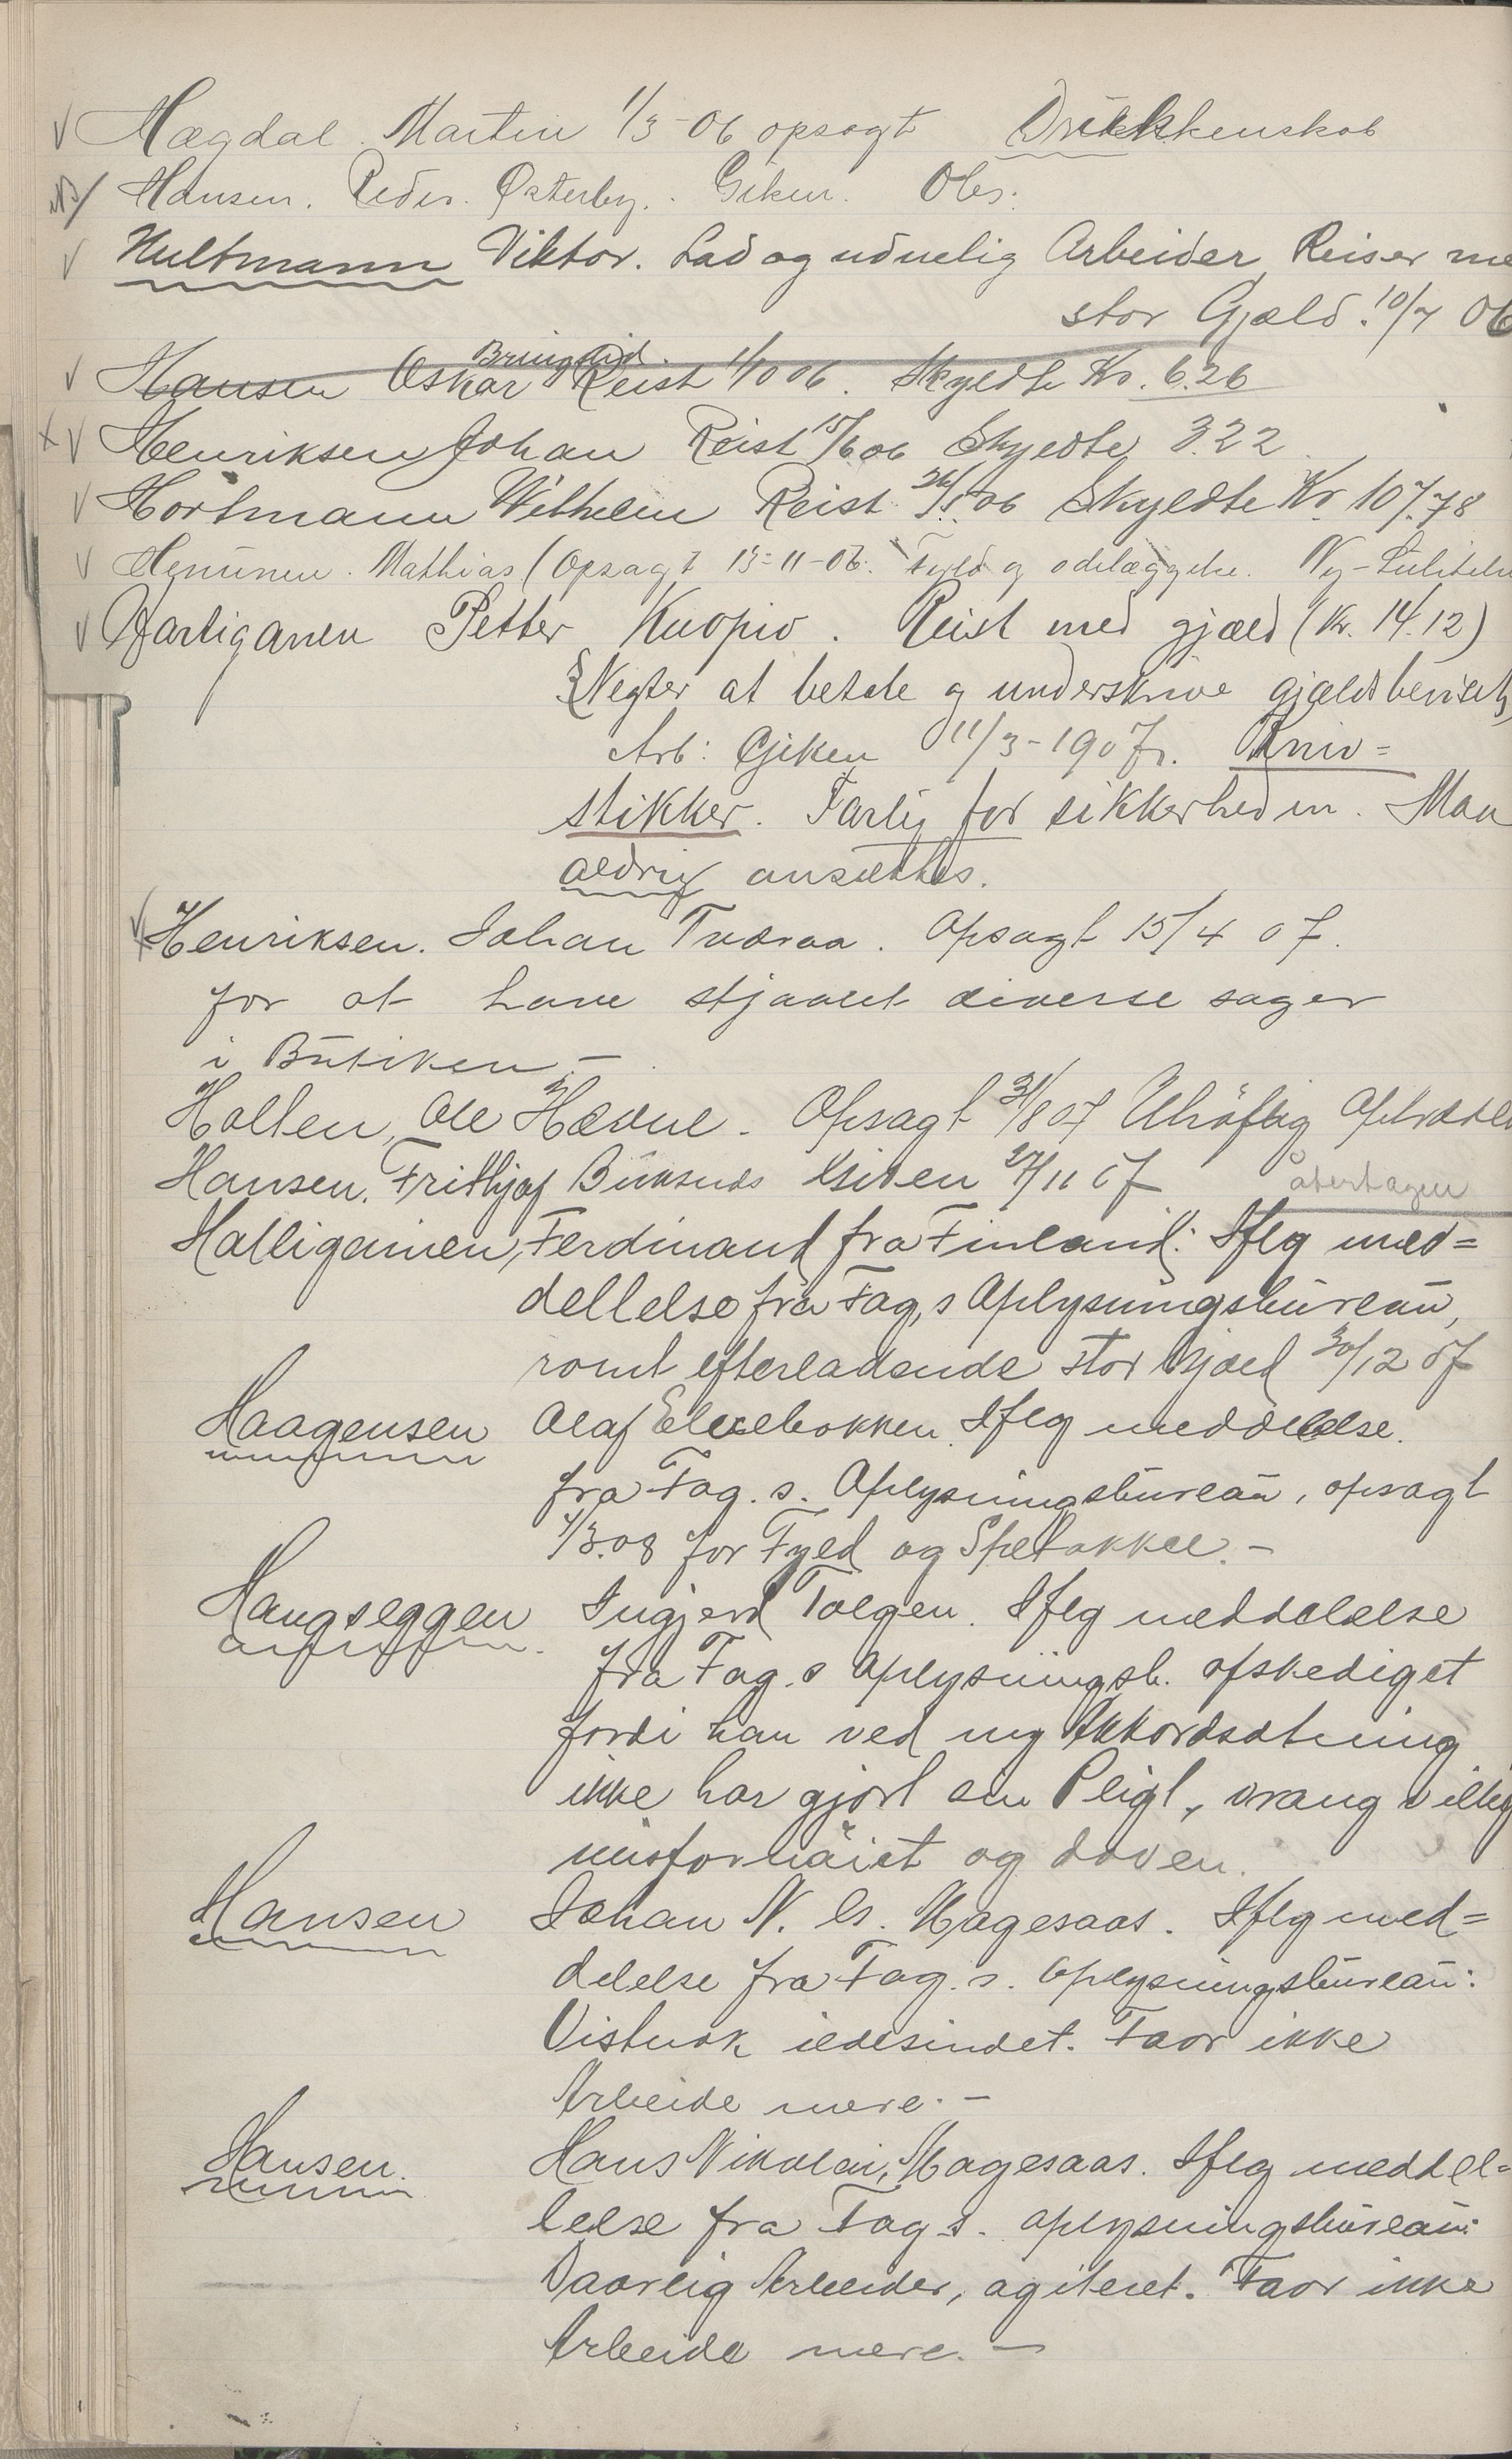 Hægdal Martin 1/3-06 opsagt Drikkenskab
Hansen. Peder. Østerby. Giken. Obs.
Hultmann Viktor. Lad og uduelig Arbeider, Reiser me
stor Gjæld. 10/7 06
Bringslid.
Hansen Oskar Reist 1/10 06. Skyldte Kr. 6.26
Henriksen Johan Reist 15/6 06 Skyldte 3.22
Hortmann Wilhelm Reist 26/5 06 Skyldte Kr. 107.78
Mathias (Opsagt 13-11-06. Fyld og ødelæggelse. Ny-Sulitelm
Hartiganen Petter Kuopio. Reist med gjæld (Kr. 14.12)
Negter at betale og underskrive gjældsbeviset,
Arb: Giken 11/3-1907. Kniv=
stikker. Farlig for sikkerheden. Maa
aldrig ansættes.
Henriksen. Johan Tværaa. Opsagt 15/4 07.
for at have stjaalet diverse sager
i Butiken -
Holten, Ole Hævne. Opsagt 31/8 07 Uhöflig Optræden
Hansen, Frithjof Buksnes 27/11 07 återtagen
Halligainen, Ferdinand fra Finland: Iflg med=
dellelse fra Fag,s Oplysningsbureau,
romt efterladende stor Gjæld 30/12 07
Haagensen Olaf Elvebakken Iflg meddelelse.
fra Fag. s. Oplysningsbureau, opsagt
1/3.08 for Fyld og Spetakkel. -
Haugseggen Ingjerd Tolgen. Iflg meddelelse
fra Fag. s Oplysningsb. afskediget
fordi han ved ny Akkordsætning
ikke har gjort sin Pligt, vrang villig
misfornöiet og doven.
Hansen Johan N. Es. Hagesaas. Iflg med=
delelse fra Fag. s. Oplysningsbureau:
Vistnok ildesindet. Faar ikke
Arbeide mere. -
Hansen. Hans Nikolai, Hagesaas. Iflg meddel=
lelse fra Fag s. oplysningsbureau:
Daarlig Arbeider, agiteret. Faar ikke
Arbeide mere. -